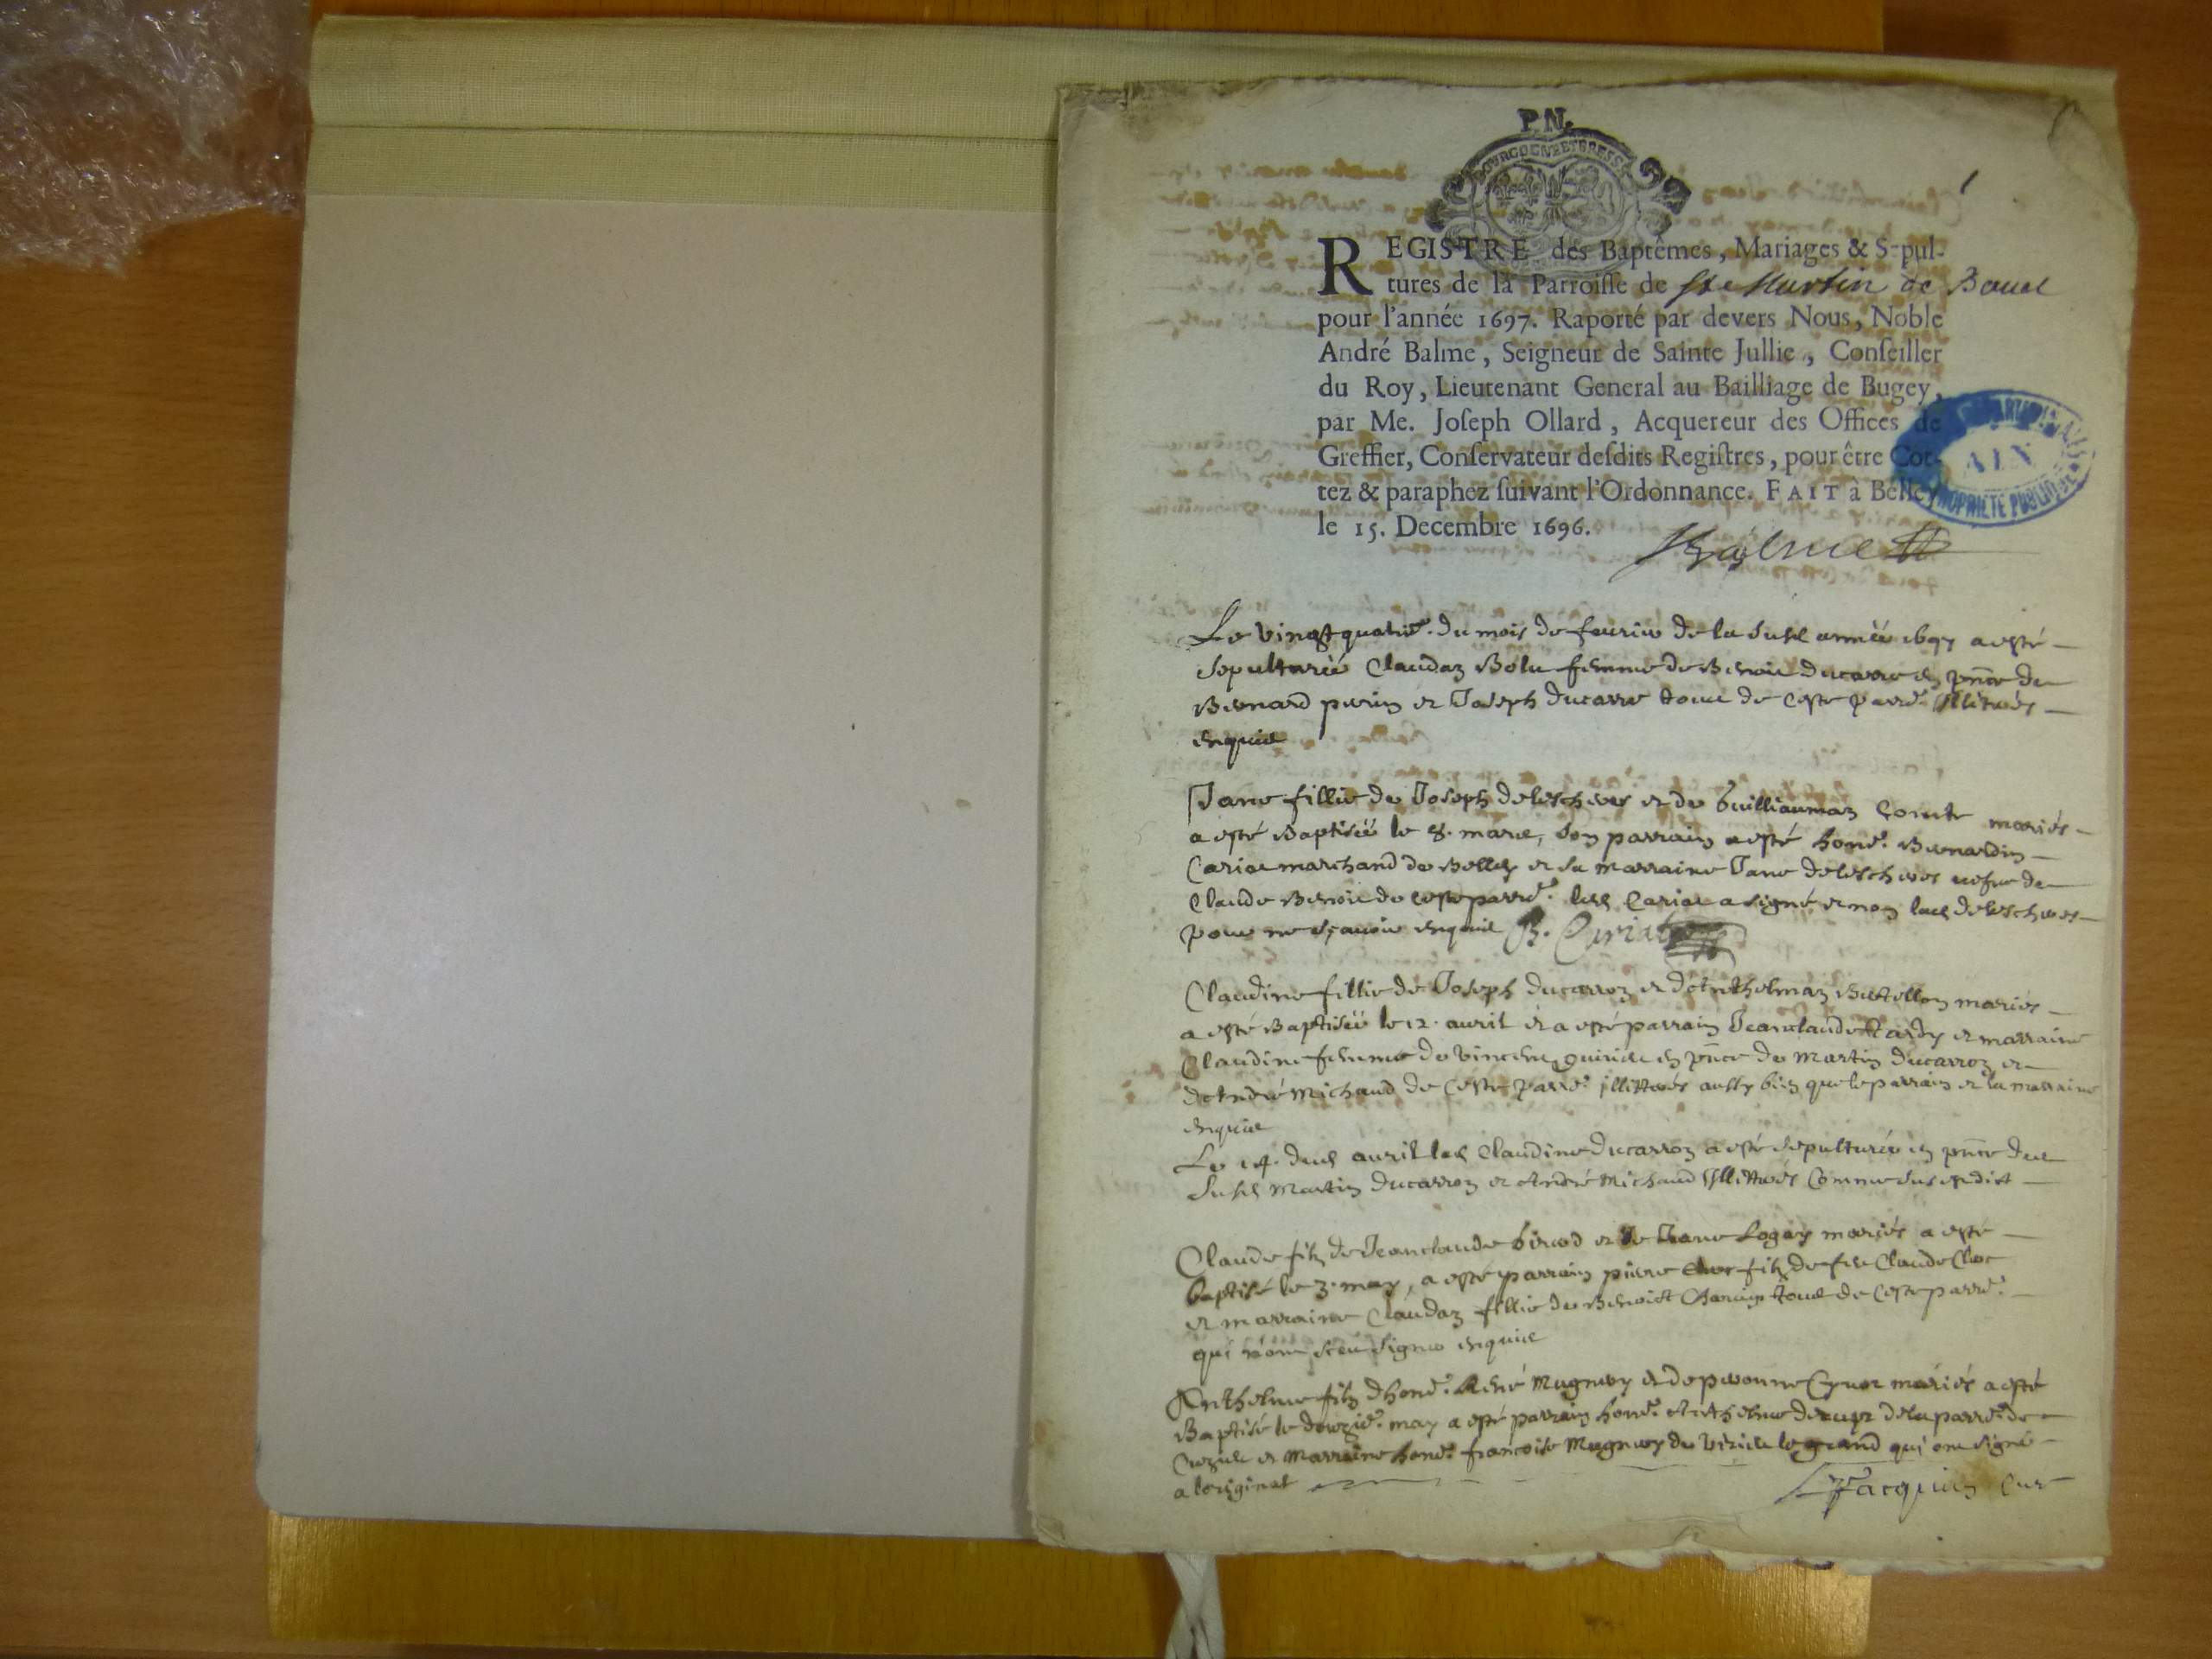 P N.
BOURGOGNE ET BRESSE
1
REGISTRE des Baptêmes, Mariages & Sepul-
tures de la Parroisse de St Martin de Bauel
pour l'année 1697. Raporté par devers Nous, Noble
André Balme, Seigneur de Sainte Jullie, Conseiller
du Roy, Lieutenant General au Bailliage de Bugey,
par Me. Joseph Ollard, Acquereur des Offices de
Greffier, Conservateur desdits Registres, pour être Cot-
tez & paraphez suivant l'Ordonnance. FAIT à Belley
le 15. Decembre 1696.
AIN
PROPRIETE PUBLIQUE
Balme
Le vingt quatrie. du mois de feurier de la susd année 1697 a esté
sepulturée Claudaz femme de Benoit ducarre en pnce de
Bernard perrin et Joseph ducarre tous de ceste parre. illitrés
enquis
Jane fillie de Joseph deleschaes et de Guilliaumaz Comte mariés
a esté Baptisée le 8. mars, son parrain a esté hone. Bernardin
Cariat marchand de Belley et sa marraine Jane deleschaes uefue de
Claude Benoit de ceste parre. led Cariat a signé et non lad deleschaes
pour ne sçauoir enquis B. Cariat
Claudine fillie de Joseph ducarroz et d'Anthelmaz mariés
a esté Baptisée le 12. auril et a esté parrain Jeanclaude Tardy et marraine
Claudine femme de Vincent en pnce de Martin ducarroz et
d'André Michaud de ceste parre. illittrés aussy bien que le parrain et la marraine
enquis
Le 14. dud auril lad Claudine ducarroz a esté sepulturée en pnce des
susd Martin ducarroz et André Michaud illittrés comme sus est dict
Claude filz de Jeanclaude Girod et de Jane Logay mariés a esté
baptisé le 3. may, a esté parrain piere filz de feu Claude
et marraine Claudaz fillie de Benoict tous de ceste parre.
qui n'ont sceu signer enquis
Anthelme filz d'hone. René Mugnier et de peronne mariés a esté
Baptisé le douzie. may a esté parrain hone. Anthelme de la parre. de
et marraine hone. francoise Mugnier de Virieu le grand qui ont signé
a loriginal
Jacquin Curé